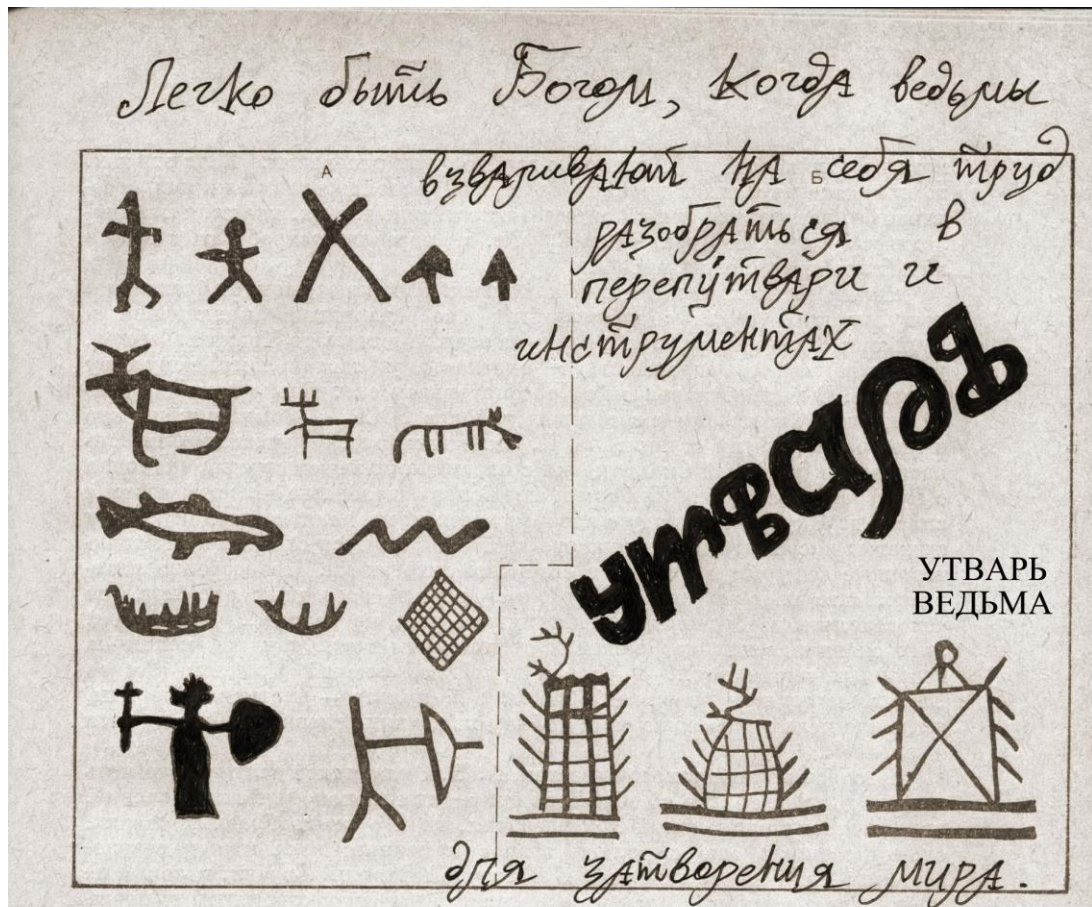 Легко быть Богом, когда ведьмы
А
взваливают на себя труд
Б
разобраться в
перепутвари и
инструментах
утварь
УТВАРЬ
ВЕДЬМА
для затворения мира.